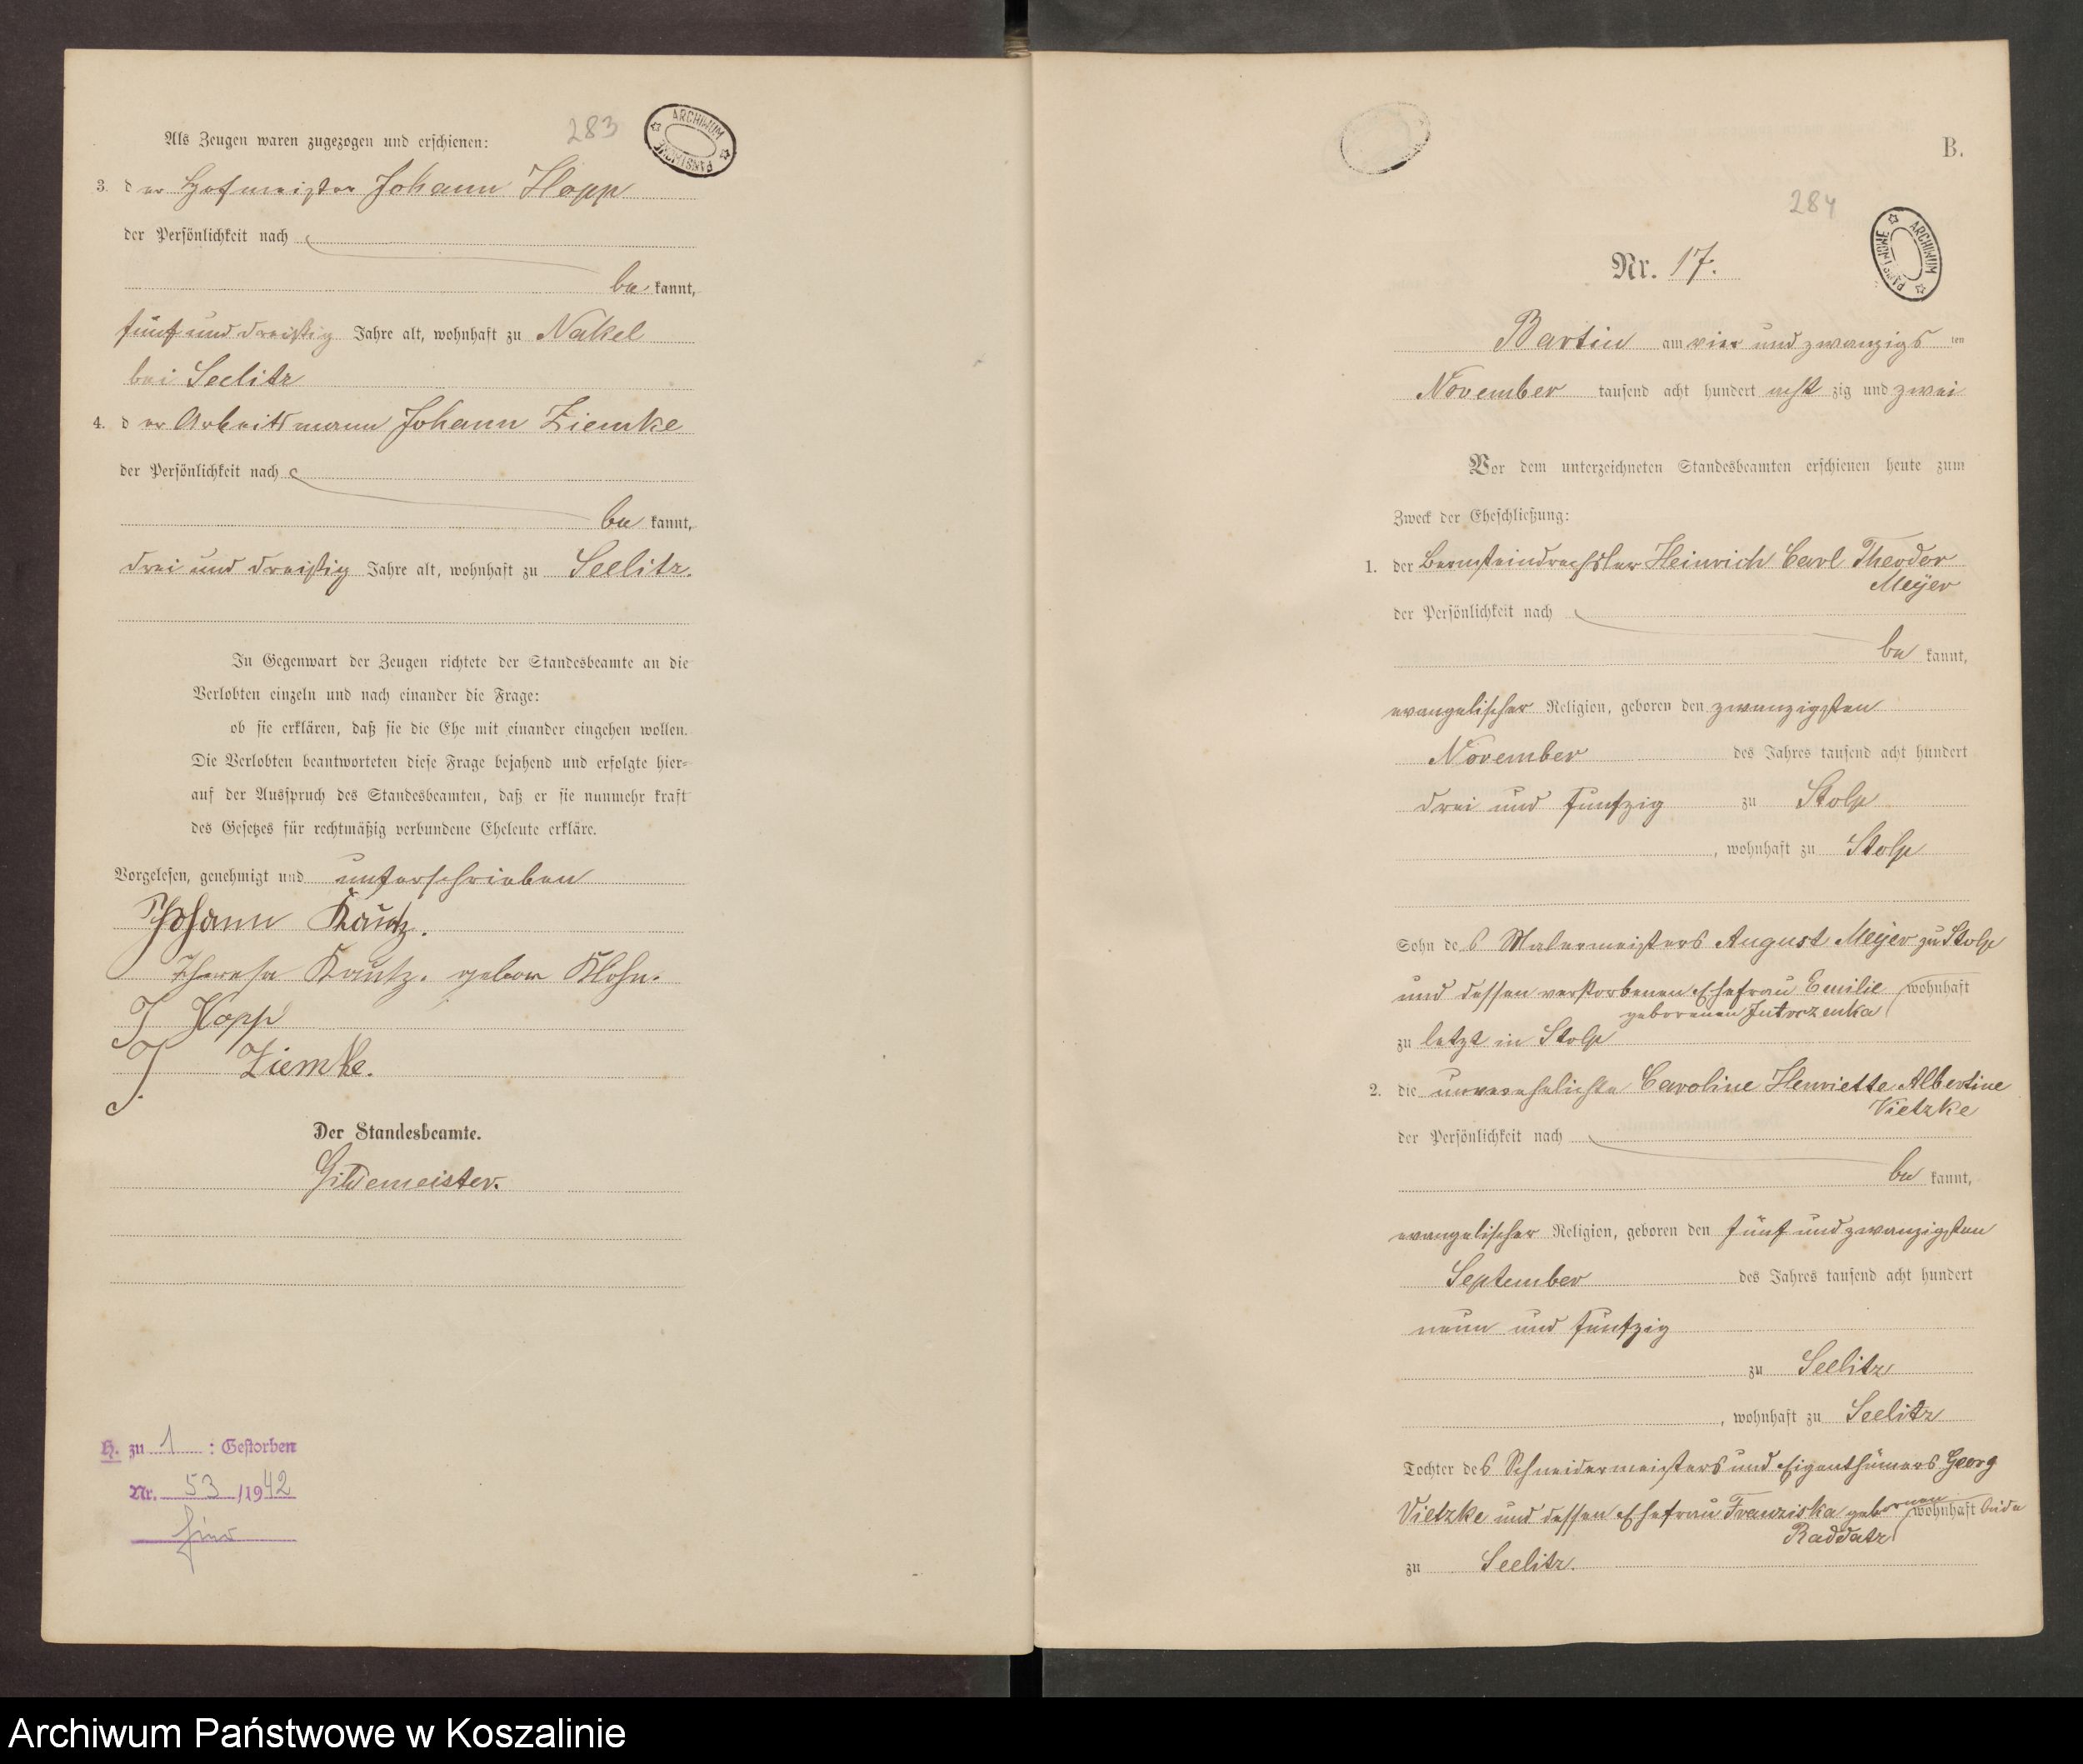 283
ARCHIWUM PAŃSTWOWE
Als Zeugen waren zugezogen und erschienen:
3. der Hofmeister Johann Hopp
der Persönlichkeit nach
be kannt,
fünf und dreißig Jahre alt, wohnhaft zu Nakel
bei Seelitz
4. der Arbeitsmann Johann Ziemke
der Persönlichkeit nach
be kannt,
drei und dreißig Jahre alt, wohnhaft zu Seelitz.
In Gegenwart der Zeugen richtete der Standesbeamte an die
Verlobten einzeln und nach einander die Frage:
ob sie erklären, daß sie die Ehe mit einander eingehen wollen.
Die Verlobten beantworteten diese Frage bejahend und erfolgte hier-
auf der Ausspruch des Standesbeamten, daß er sie nunmehr kraft
des Gesetzes für rechtmäßig verbundene Eheleute erkläre.
Vorgelesen, genehmigt und unterschrieben
Johann Kautz.
Theresa Kautz. geborn Klohn.
J Hopp
J Ziemke.
Der Standesbeamte.
Gildemeister.
H. zu 1 : Gestorben
Nr. 53 /1942
B.
284
ARCHIWUM PAŃSTWOWE
Nr. 17.
Bartin am vier und zwanzigs ten
November tausend acht hundert acht zig und zwei
Vor dem unterzeichneten Standesbeamten erschienen heute zum
Zweck der Eheschließung:
1. der Bernsteindrechsler Heinrich Carl Theodor
Meÿer
der Persönlichkeit nach
be kannt,
evangelischer Religion, geboren den zwanzigsten
November des Jahres tausend acht hundert
drei und funfzig zu Stolp
, wohnhaft zu Stolp
Sohn des Malermeisters August Meÿer zu Stolp
und dessen verstorbenen Ehefrau Emilie wohnhaft
geborenen Jutrzenka
zu letzt in Stolp
2. die unverehelichte Caroline Henriette Albertine
Vietzke
der Persönlichkeit nach
be kannt,
evangelischer Religion, geboren den fünf und zwanzigsten
September des Jahres tausend acht hundert
neun und funfzig
zu Seelitz
, wohnhaft zu Seelitz
Tochter des Schneidermeisters und Eigenthümers Georg
Vietzke und dessen Ehefrau Franziska gebornen wohnhaft beide
Raddatz
zu Seelitz.
Archiwum Państwowe w Koszalinie